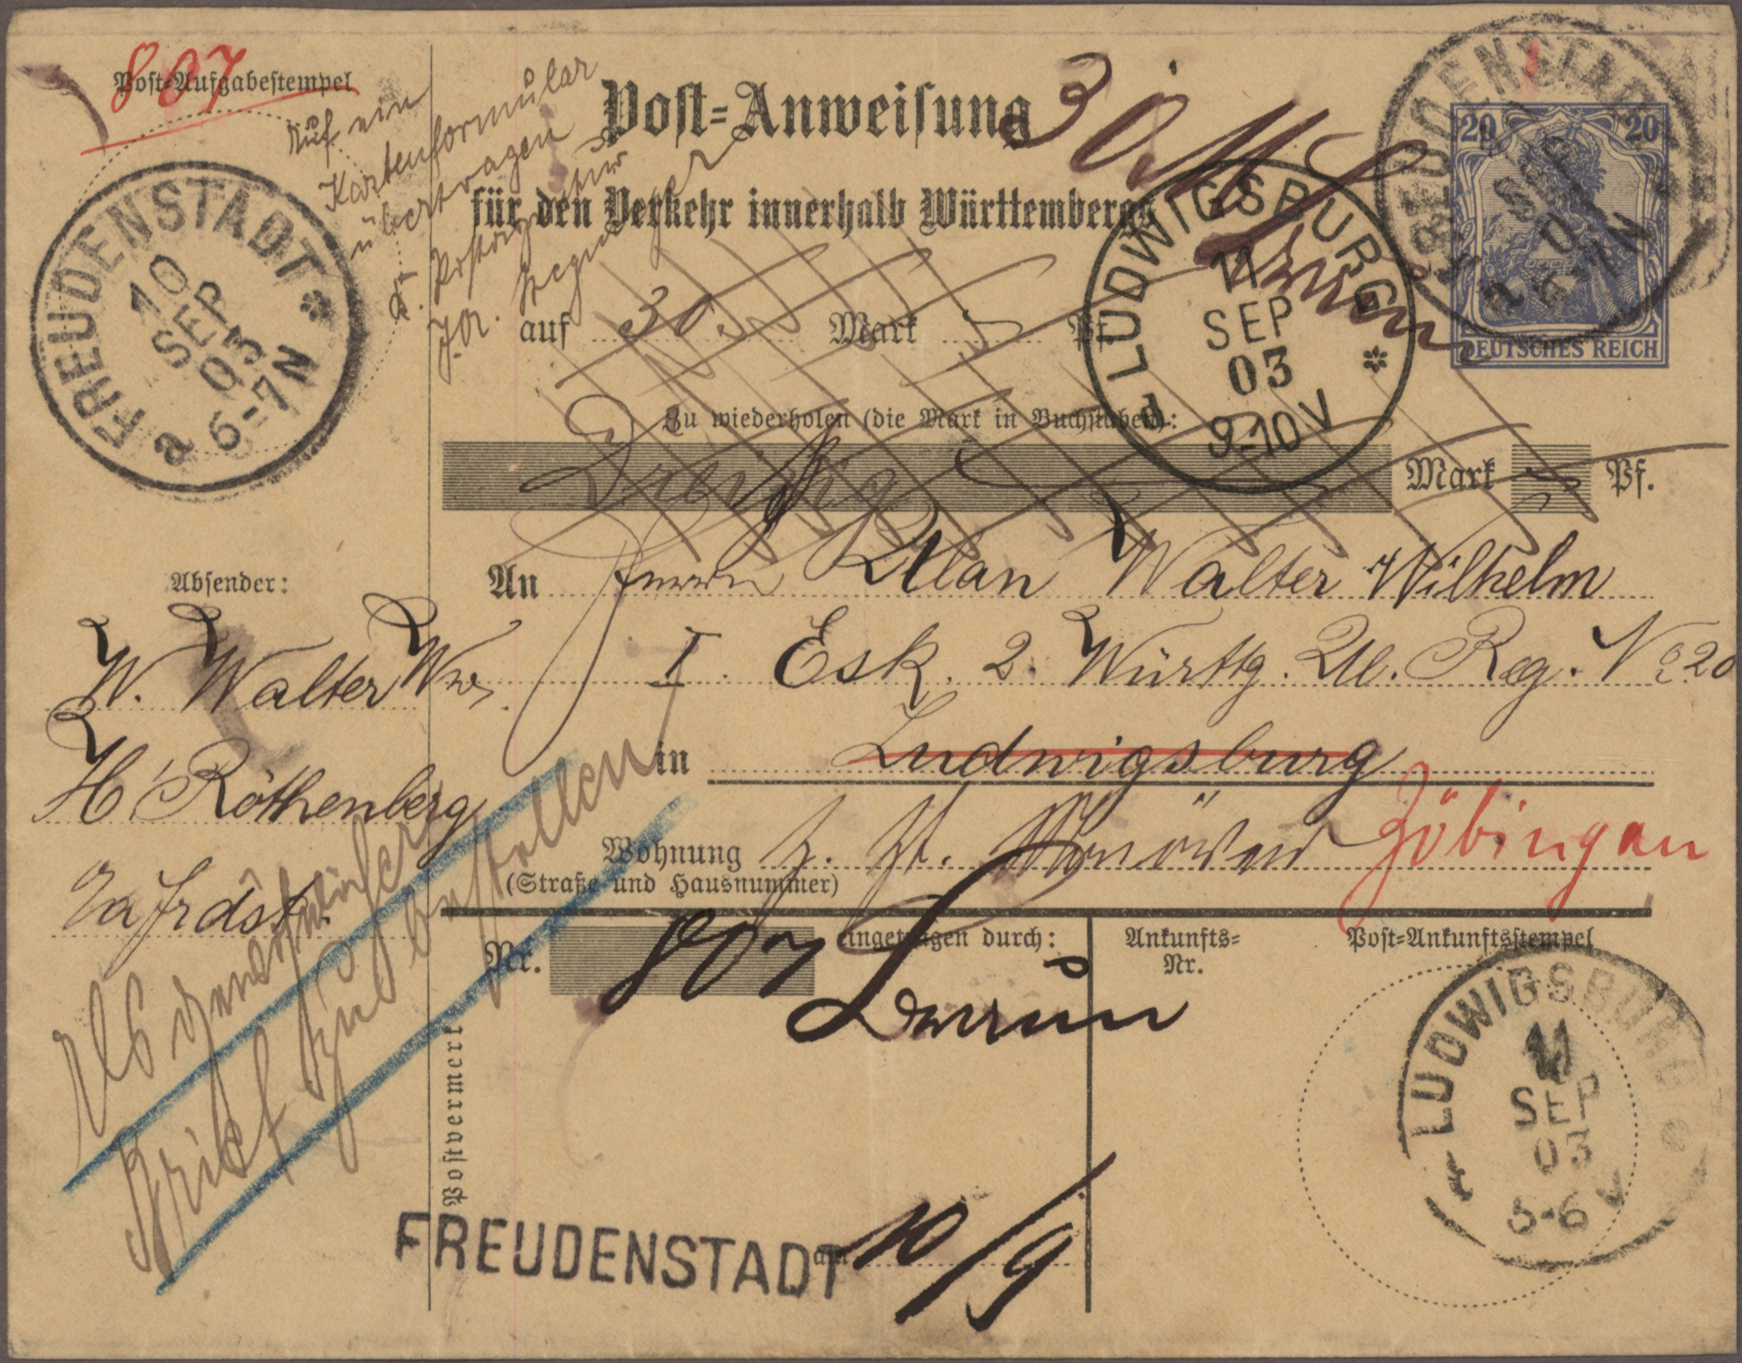 807
Post-Aufgabestempel
Auf ein
Kartenformular
übertragen
FREUDENSTADT
10
SEP
03
6-7N
a
Post-Anweisung
30 M
für den Verkehr innerhalb Württembergs
auf 30 Mark Pf.
Zu wiederholen (die Mark in Buchstaben):
Dreißig Mark Pf.
LUDWIGSBURG
11
SEP
03
9-10V
FREUDENSTADT
SEP
6-7N
a
20 20
DEUTSCHES REICH
Absender:
W. Walter Wwe.
H'Röthenberg
An Herrn Ulan Walter Wilhelm
I. Esk. 2. Württg. Ul. Reg. No 20
in Ludwigsburg
Wohnung z. Zt. Manöver Zöbingen
(Straße und Hausnummer)
Als gewöhnlicher
Brief zu bestellen
Nr. 807
eingetragen durch:
Ankunfts-
Nr.
Post-Ankunftsstempel
Postvermerk
LUDWIGSBURG
11
SEP
03
5-6V
FREUDENSTADT
am 10/9